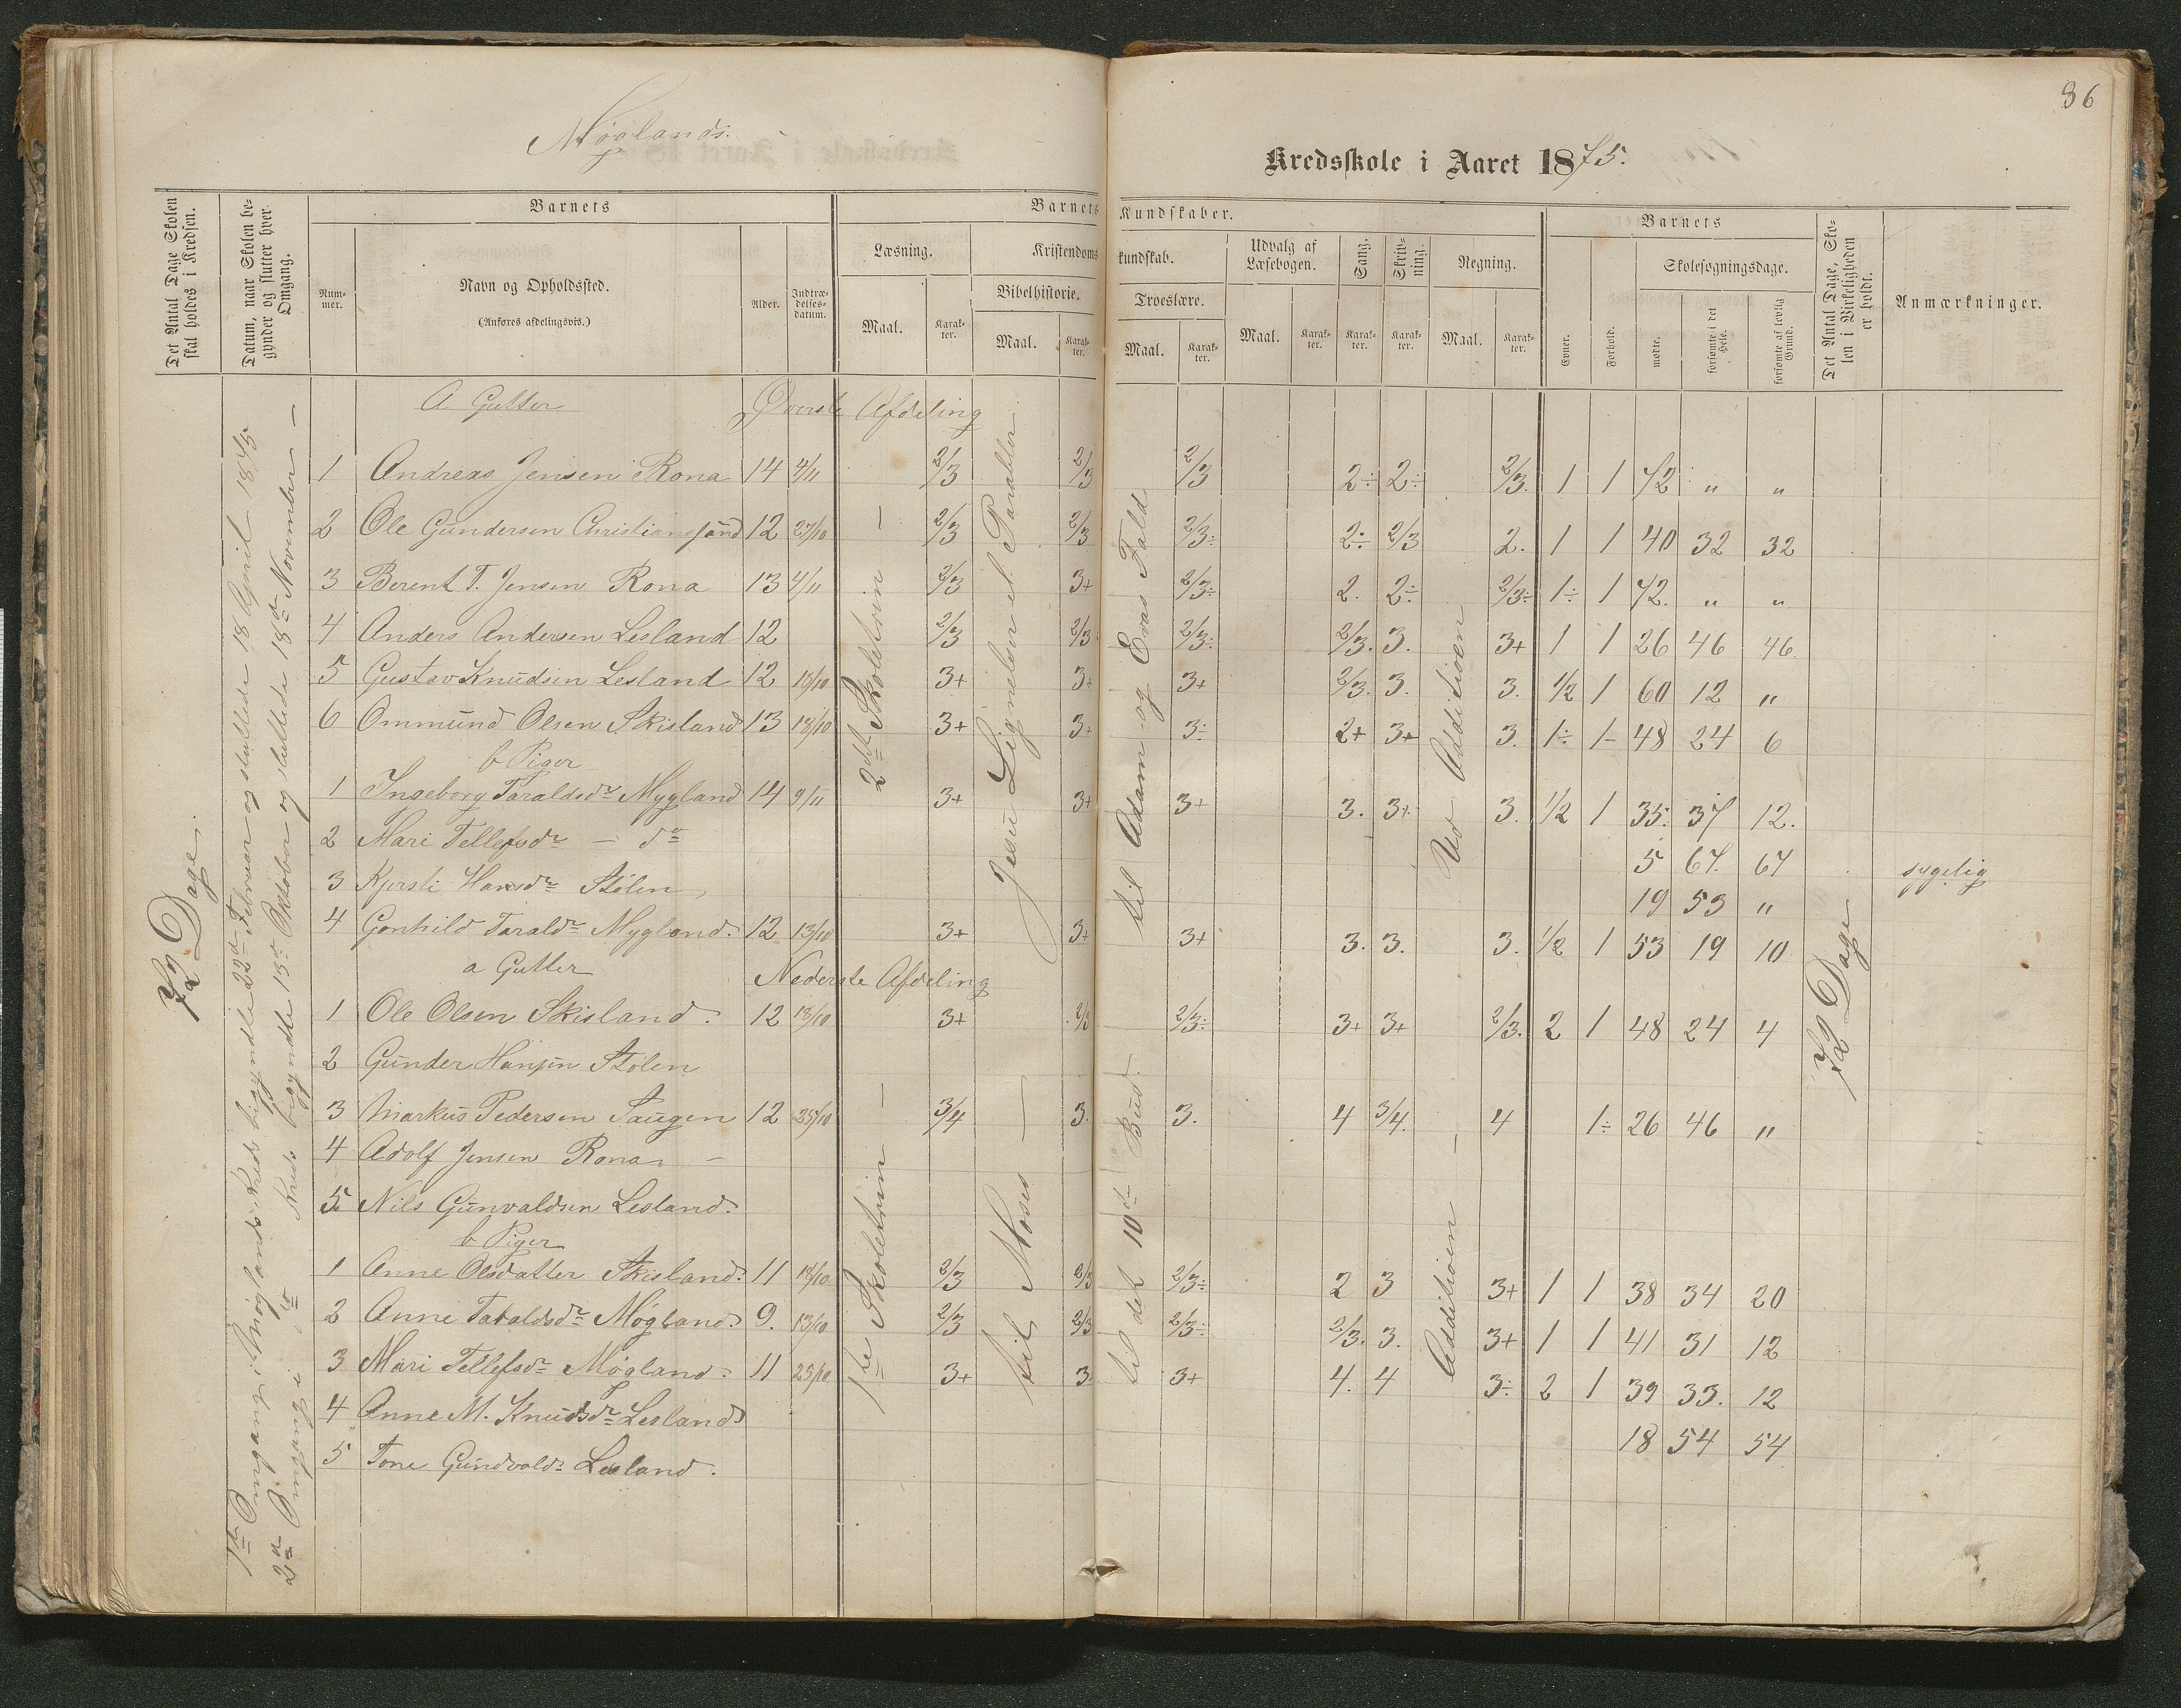 86
Møglands.
Kredsskole i Aaret 1875.
Det Antal Dage Skolen skal holdes i Kredsen.
Datum, naar Skolen begynder og slutter hver Omgang.
Barnets
Nummer.
Navn og Opholdssted.
(Anføres afdelingsvis.)
Alder.
Indtrædelses-datum.
Barnets Kundskaber.
Læsning.
Maal.
Karakter.
Kristendomskundskab.
Bibelhistorie.
Maal.
Karakter.
Troeslære.
Maal.
Karakter.
Udvalg af Læsebogen.
Maal.
Karakter.
Sang.
Karakter.
Skrivning.
Karakter.
Regning.
Maal.
Karakter.
Barnets
Evner.
Forhold.
Skolesøgningsdage.
mødte.
forsømte i det Hele.
forsømte af lovlig Grund.
Det Antal Dage, Skolen i Virkeligheden er holdt.
Anmærkninger.
72 Dage.
1ste Omgang i Møglands Kreds begyndte 22de Februar og sluttede 18 April 1875
2den Omgang i do Kreds begyndte 13de Oktober og sluttede 18de November —
A Gutter Øverste Afdeling
1 Andreas Jensen Rona 14 4/11 2/3 2/3 2/3 2÷ 2÷ 2/3. 1 1 72 " "
2 Ole Gundersen Christiansand 12 27/10 2/3 2/3 2/3÷ 2÷ 2/3 2. 1 1 40 32 32
3 Berent T. Jensen Rona 13 4/11 2/3 3+ 2/3÷ 2. 2÷ 2/3÷ 1÷ 1 72. " "
4 Anders Andersen Lesland 12 2/3 2/3 2/3÷ 2/3. 3. 3+ 1 1 26 46 46.
5 Gustav Knudsen Lesland 12 18/10 3+ 3+ 3+ 2/3. 3. 3. 1/2 1 60 12 "
6 Ommund Olsen Skisland 13 18/10 3+ 3+ 3÷ 2+ 3+ 3. 1÷ 1- 48 24 6
b Piger
1 Ingeborg Taraldsdr Mygland 14 9/11 3+ 3+ 3+ 3. 3+ 3. 1/2 1 35. 37 12.
2 Mari Tellefsdr — do 5 67. 67 sygelig
3 Kjersti Hansdr Stølen 19 53 "
4 Gonhild Taraldr Mygland. 12 13/10 3+ 3+ 3+ 3. 3. 3. 1/2 1 53 19 10
a Gutter Nederste Afdeling
1 Ole Olsen Skisland. 12 18/10 3+ 2/3 2/3÷ 3+ 3+ 2/3. 2 1 48 24 4
2 Gunder Hansen Stølen
3 Markus Pedersen Haugen 12 25/10 3/4 3. 3. 4 3/4. 4 1÷ 26 46 "
4 Adolf Jensen Rona —
5. Nils Gunvaldsen Lesland.
b Piger
1 Anne Olsdatter Skisland. 11 18/10 2/3 2/3 2/3÷ 2 3 3+ 1 1 38 34 20
2 Anne Taraldsdr Møgland. 9. 13/10 2/3 2/3 2/3÷ 2/3. 3. 3+ 1 1 41 31 12
3 Mari Tellefsdr Møgland. 11 25/10 3+ 3 3+ 4. 4 3÷ 2 1 39 33. 12
4 Anne M. Knudsdr Lesland 18 54 54
5 Tone Gundvaldr Lesland.
2det Skoletrin —
Jesu Lignelser el. Parabler
til Adam og Evas Fald
Ved Additioen
1ste Skoletrin —
til Moses —
til det 10de Bud.
Additioen —
72 Dage